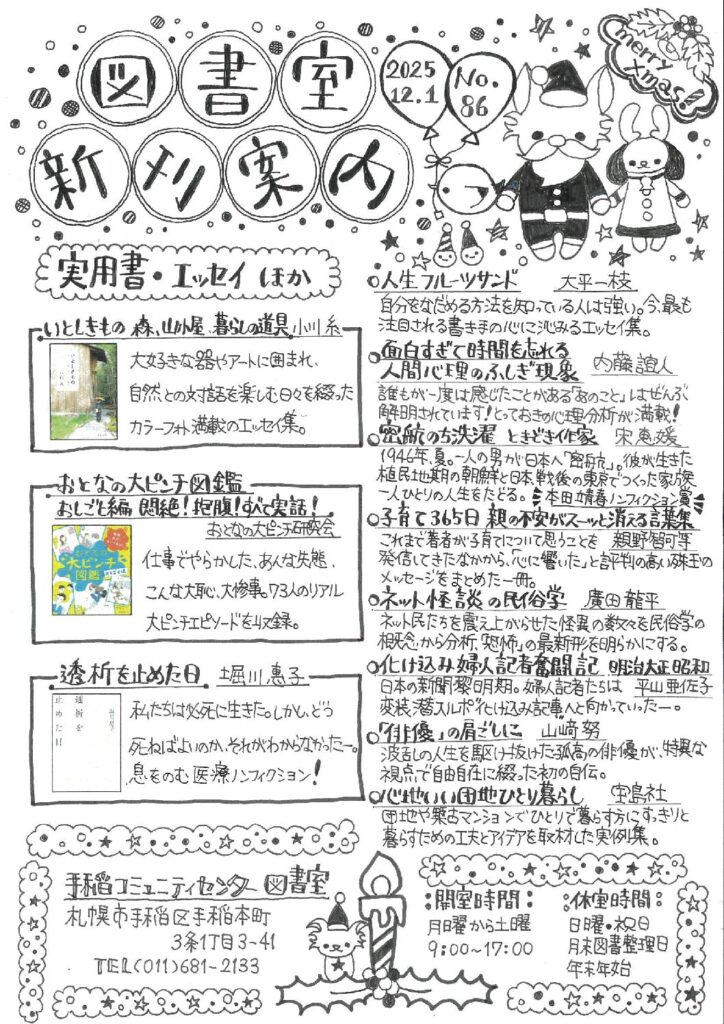 図書室
新刊案内
2025
12.1
No.
86
merry
xmas!!
実用書・エッセイ ほか
いとしきもの 森、山小屋、暮らしの道具 小川 糸
大好きな器やアートに囲まれ、
自然との対話を楽しむ日々を綴った
カラーフォト満載のエッセイ集。
おとなの大ピンチ図鑑
おしごと編 悶絶!抱腹!すべて実話!
おとなの大ピンチ研究会
大ピンチ
図鑑
仕事でやらかした、あんな失態、
こんな大恥、大惨事。73人のリアル
大ピンチエピソードを収録。
透析を止めた日 堀川 惠子
透析を
止めた日
私たちは必死に生きた。しかし、どう
死ねばよいのか、それがわからなかったー。
息をのむ医療ノンフィクション!
人生フルーツサンド 大平一枝
自分をなだめる方法を知っている人は強い。今、最も
注目される書き手の心に沁みるエッセイ集。
面白すぎて時間を忘れる
人間心理のふしぎ現象 内藤誼人
誰もが一度は感じたことがある「あのこと」はぜんぶ
解明されています!とっておきの心理分析が満載!
密航のち洗濯 ときどき作家 宋恵媛
1946年、夏。一人の男が日本へ「密航」。彼が生きた
植民地期の朝鮮と日本、戦後の東京でつくった家族
一人ひとりの人生をたどる。 本田靖春ノンフィクション賞
子育て365日 親の不安がスーッと消える言葉集
これまで著者が子育てについて思うことを 親野智可等
発信してきたなかから、「心に響いた」と評判の高い珠玉の
メッセージをまとめた一冊。
ネット怪談の民俗学 廣田 龍平
ネット民たちを震え上がらせた怪異の数々を民俗学の
概念から分析、「恐怖」の最新形を明らかにする。
化け込み婦人記者奮闘記 明治大正昭和
日本の新聞黎明期。婦人記者たちは 平山亜佐子
変装潜入ルポ“化け込み記事”へと向かっていったー。
「俳優」の肩ごしに 山﨑 努
波乱の人生を駆け抜けた孤高の俳優が、特異な
視点で自由自在に綴った初の自伝。
心地いい団地ひとり暮らし 宝島社
団地や築古マンションでひとりで暮らす方にすっきりと
暮らすための工夫とアイデアを取材した実例集。
手稲コミュニティセンター 図書室
札幌市手稲区手稲本町
3条1丁目3-41
TEL(011)681-2133
開室時間:
月曜日から土曜
9:00~17:00
休室時間:
日曜・祝日
月末図書整理日
年末年始